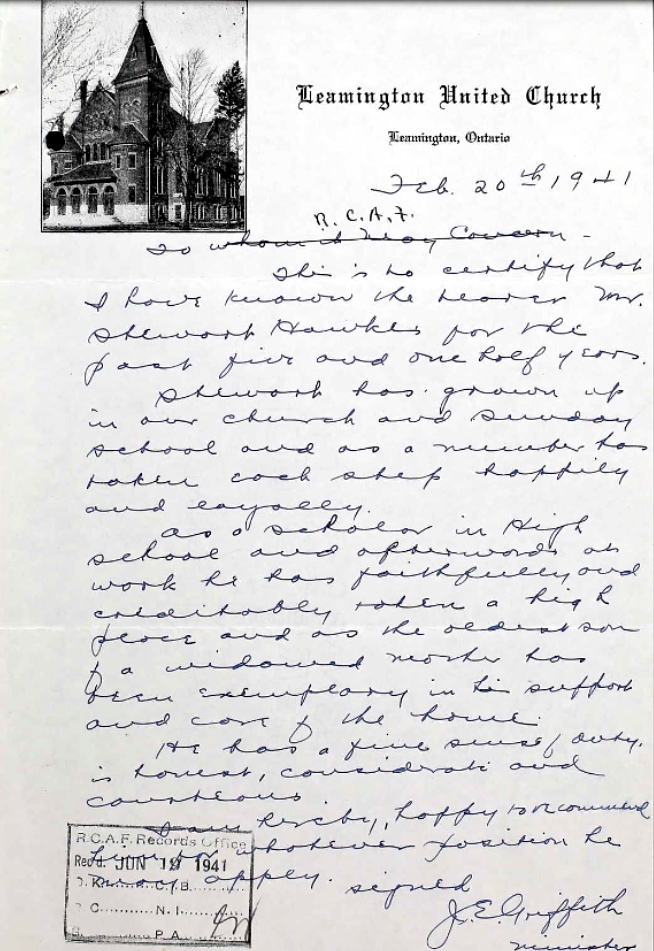 Leamington United Church
Leamington, Ontario
Feb. 20th 1941
R. C. A. F.
To whom it May Concern -
This is to certify that
I have known the bearer Mr.
Stewart Hawkes for the
past five and one half years.
Stewart has grown up
in our church and Sunday
school and as a member has
taken each step happily
and loyally.
As a scholar in High
school and afterwards at
work he has faithfully and
creditably taken a high
place and as the oldest son
of a widowed mother has
been exemplary in his support
and care of the home.
He has a fine sense of duty,
is honest, considerate and
courteous.
I am hereby, happy to recommend
him for whatever position he
may apply.
signed
J. E. Griffith
minister
R.C.A.F. Records Office
Rec'd. JUN 19 1941
C.I.B.
C. N.I.
P.A.